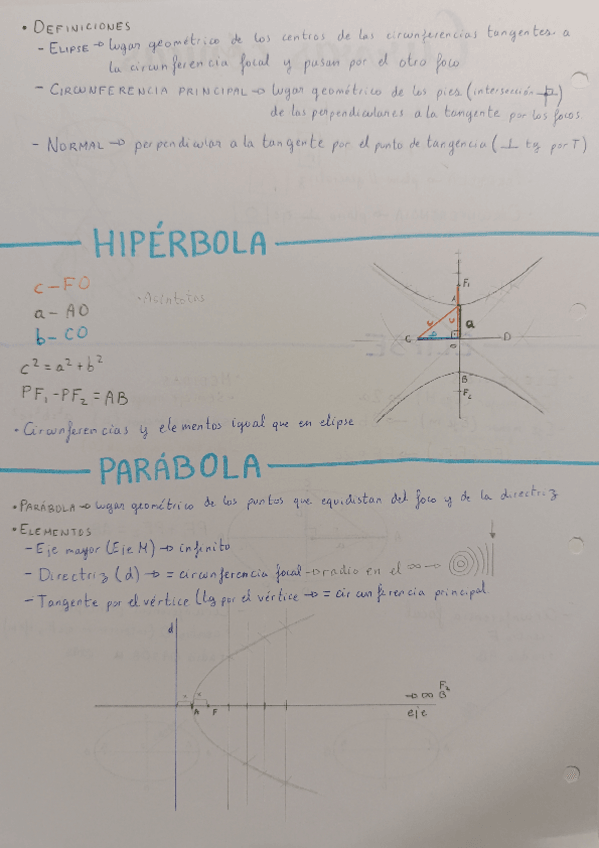 • DEFINICIONES
- ELIPSE → lugar geométrico de los centros de las circunferencias tangentes a
la circunferencia focal y pasan por el otro foco
- CIRCUNFERENCIA PRINCIPAL → lugar geométrico de los pies (intersección)
de las perpendiculares a la tangente por los focos.
- NORMAL → perpendicular a la tangente por el punto de tangencia (⊥ tg por T)
HIPÉRBOLA
c - FO
• Asíntotas
a - AO
b - CO
c² = a² + b²
PF₁ - PF₂ = AB
• Circunferencias y elementos igual que en elipse
F₁
A
c
c
a
C
b
O
D
B
F₂
PARÁBOLA
• PARÁBOLA → lugar geométrico de los puntos que equidistan del foco y de la directriz
• ELEMENTOS
- Eje mayor (Eje M) → infinito
- Directriz (d) → = circunferencia focal → radio en el ∞ →
- Tangente por el vértice (tg por el vértice → = circunferencia principal.
d
x x
A F
→ ∞
F₂
B
eje